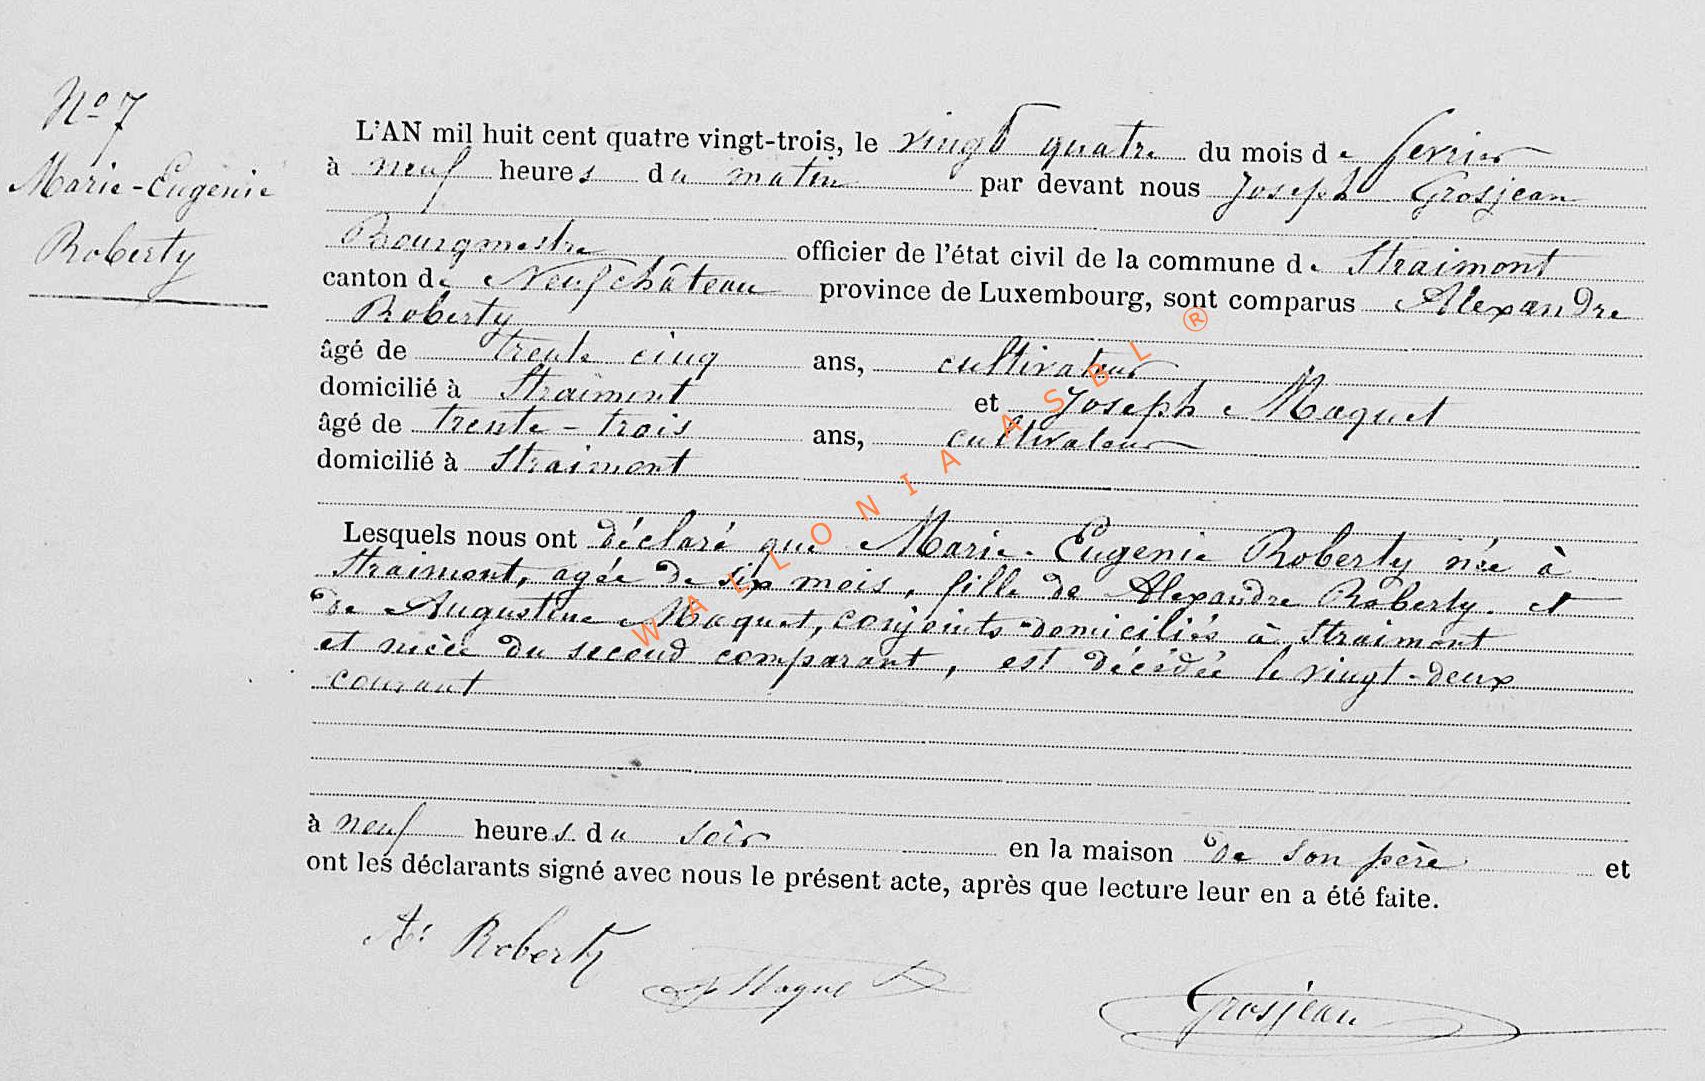 No 7
Marie-Eugénie
Roberty
L'AN mil huit cent quatre vingt-trois, le vingt quatre du mois de fevrier
à neuf heures du matin par devant nous Joseph Grosjean
Bourgmestre officier de l'état civil de la commune de Straimont
canton de Neufchâteau province de Luxembourg, sont comparus Alexandre
Roberty
âgé de trente cinq ans, cultivateur
domicilié à Straimont et Joseph Maquet
âgé de trente-trois ans, cultivateur
domicilié à Straimont
Lesquels nous ont déclaré que Marie-Eugenie Roberty née à
Straimont, agée de six mois, fille de Alexandre Roberty. et
de Augustine Maquet, conjoints domiciliés à Straimont
et nièce du second comparant, est décédée le vingt-deux
courant
à neuf heures du soir en la maison de son père et
ont les déclarants signé avec nous le présent acte, après que lecture leur en a été faite.
Ar Roberty
J Maquet
Grosjean
WALLONIA ASBL ®